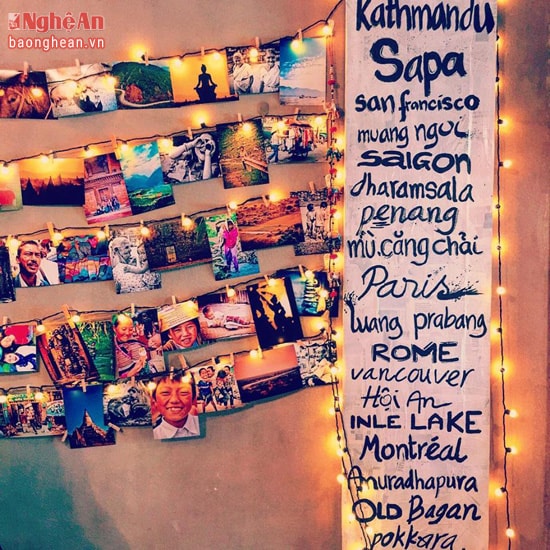 NghệAn
baonghean.vn
Kathmandu
Sapa
san francisco
muang ngoi
SAIGON
dharamsala
penang
mù căng chải
Paris
luang prabang
ROME
vancouver
Hội An
INLE LAKE
Montréal
Anuradhapura
OLD Bagan
pokkara